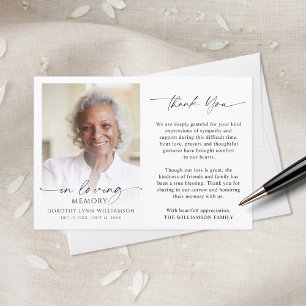 in loving
MEMORY
DOROTHY LYNN WILLIAMSON
Thank You
We are deeply grateful for your kind
expressions of sympathy and
support during this difficult time.
Your love, prayers and thoughtful
gestures have brought comfort
to our hearts.
Though our loss is great, the
kindness of friends and family has
been a true blessing. Thank you for
sharing in our sorrow and honoring
their memory with us.
With heartfelt appreciation,
THE WILLIAMSON FAMILY